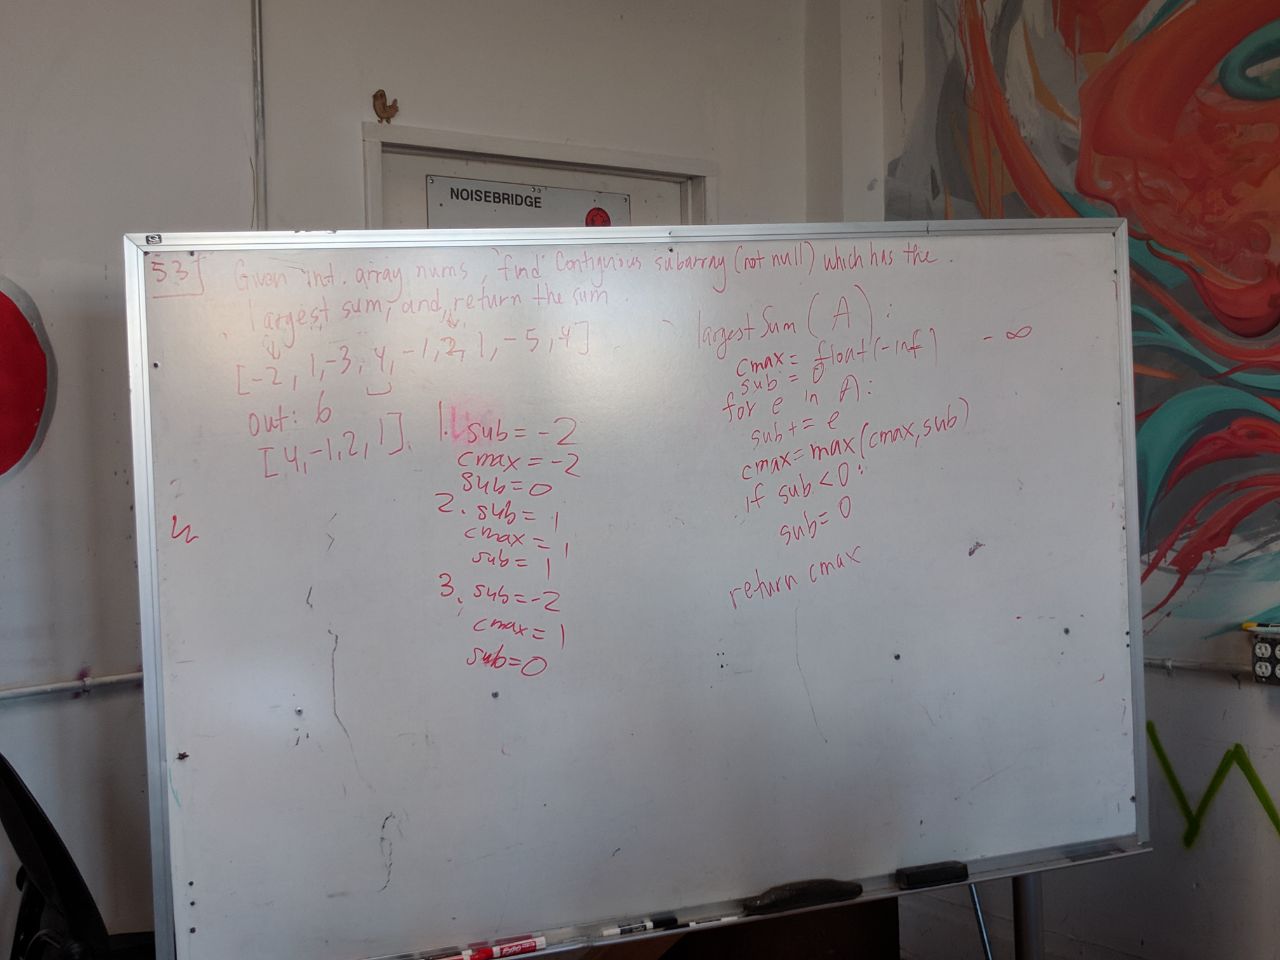 NOISEBRIDGE
53] Given int. array nums, find contiguous subarray (not null) which has the
largest sum, and return the sum.
[-2, 1, -3, 4, -1, 2, 1, -5, 4]
out: 6
[4, -1, 2, 1].
1. sub = -2
cmax = -2
sub = 0
2. sub = 1
cmax = 1
sub = 1
3. sub = -2
cmax = 1
sub = 0
largestSum (A):
cmax = float(-inf) -∞
sub = 0
for e in A:
sub += e
cmax = max(cmax, sub)
if sub < 0:
sub = 0
return cmax